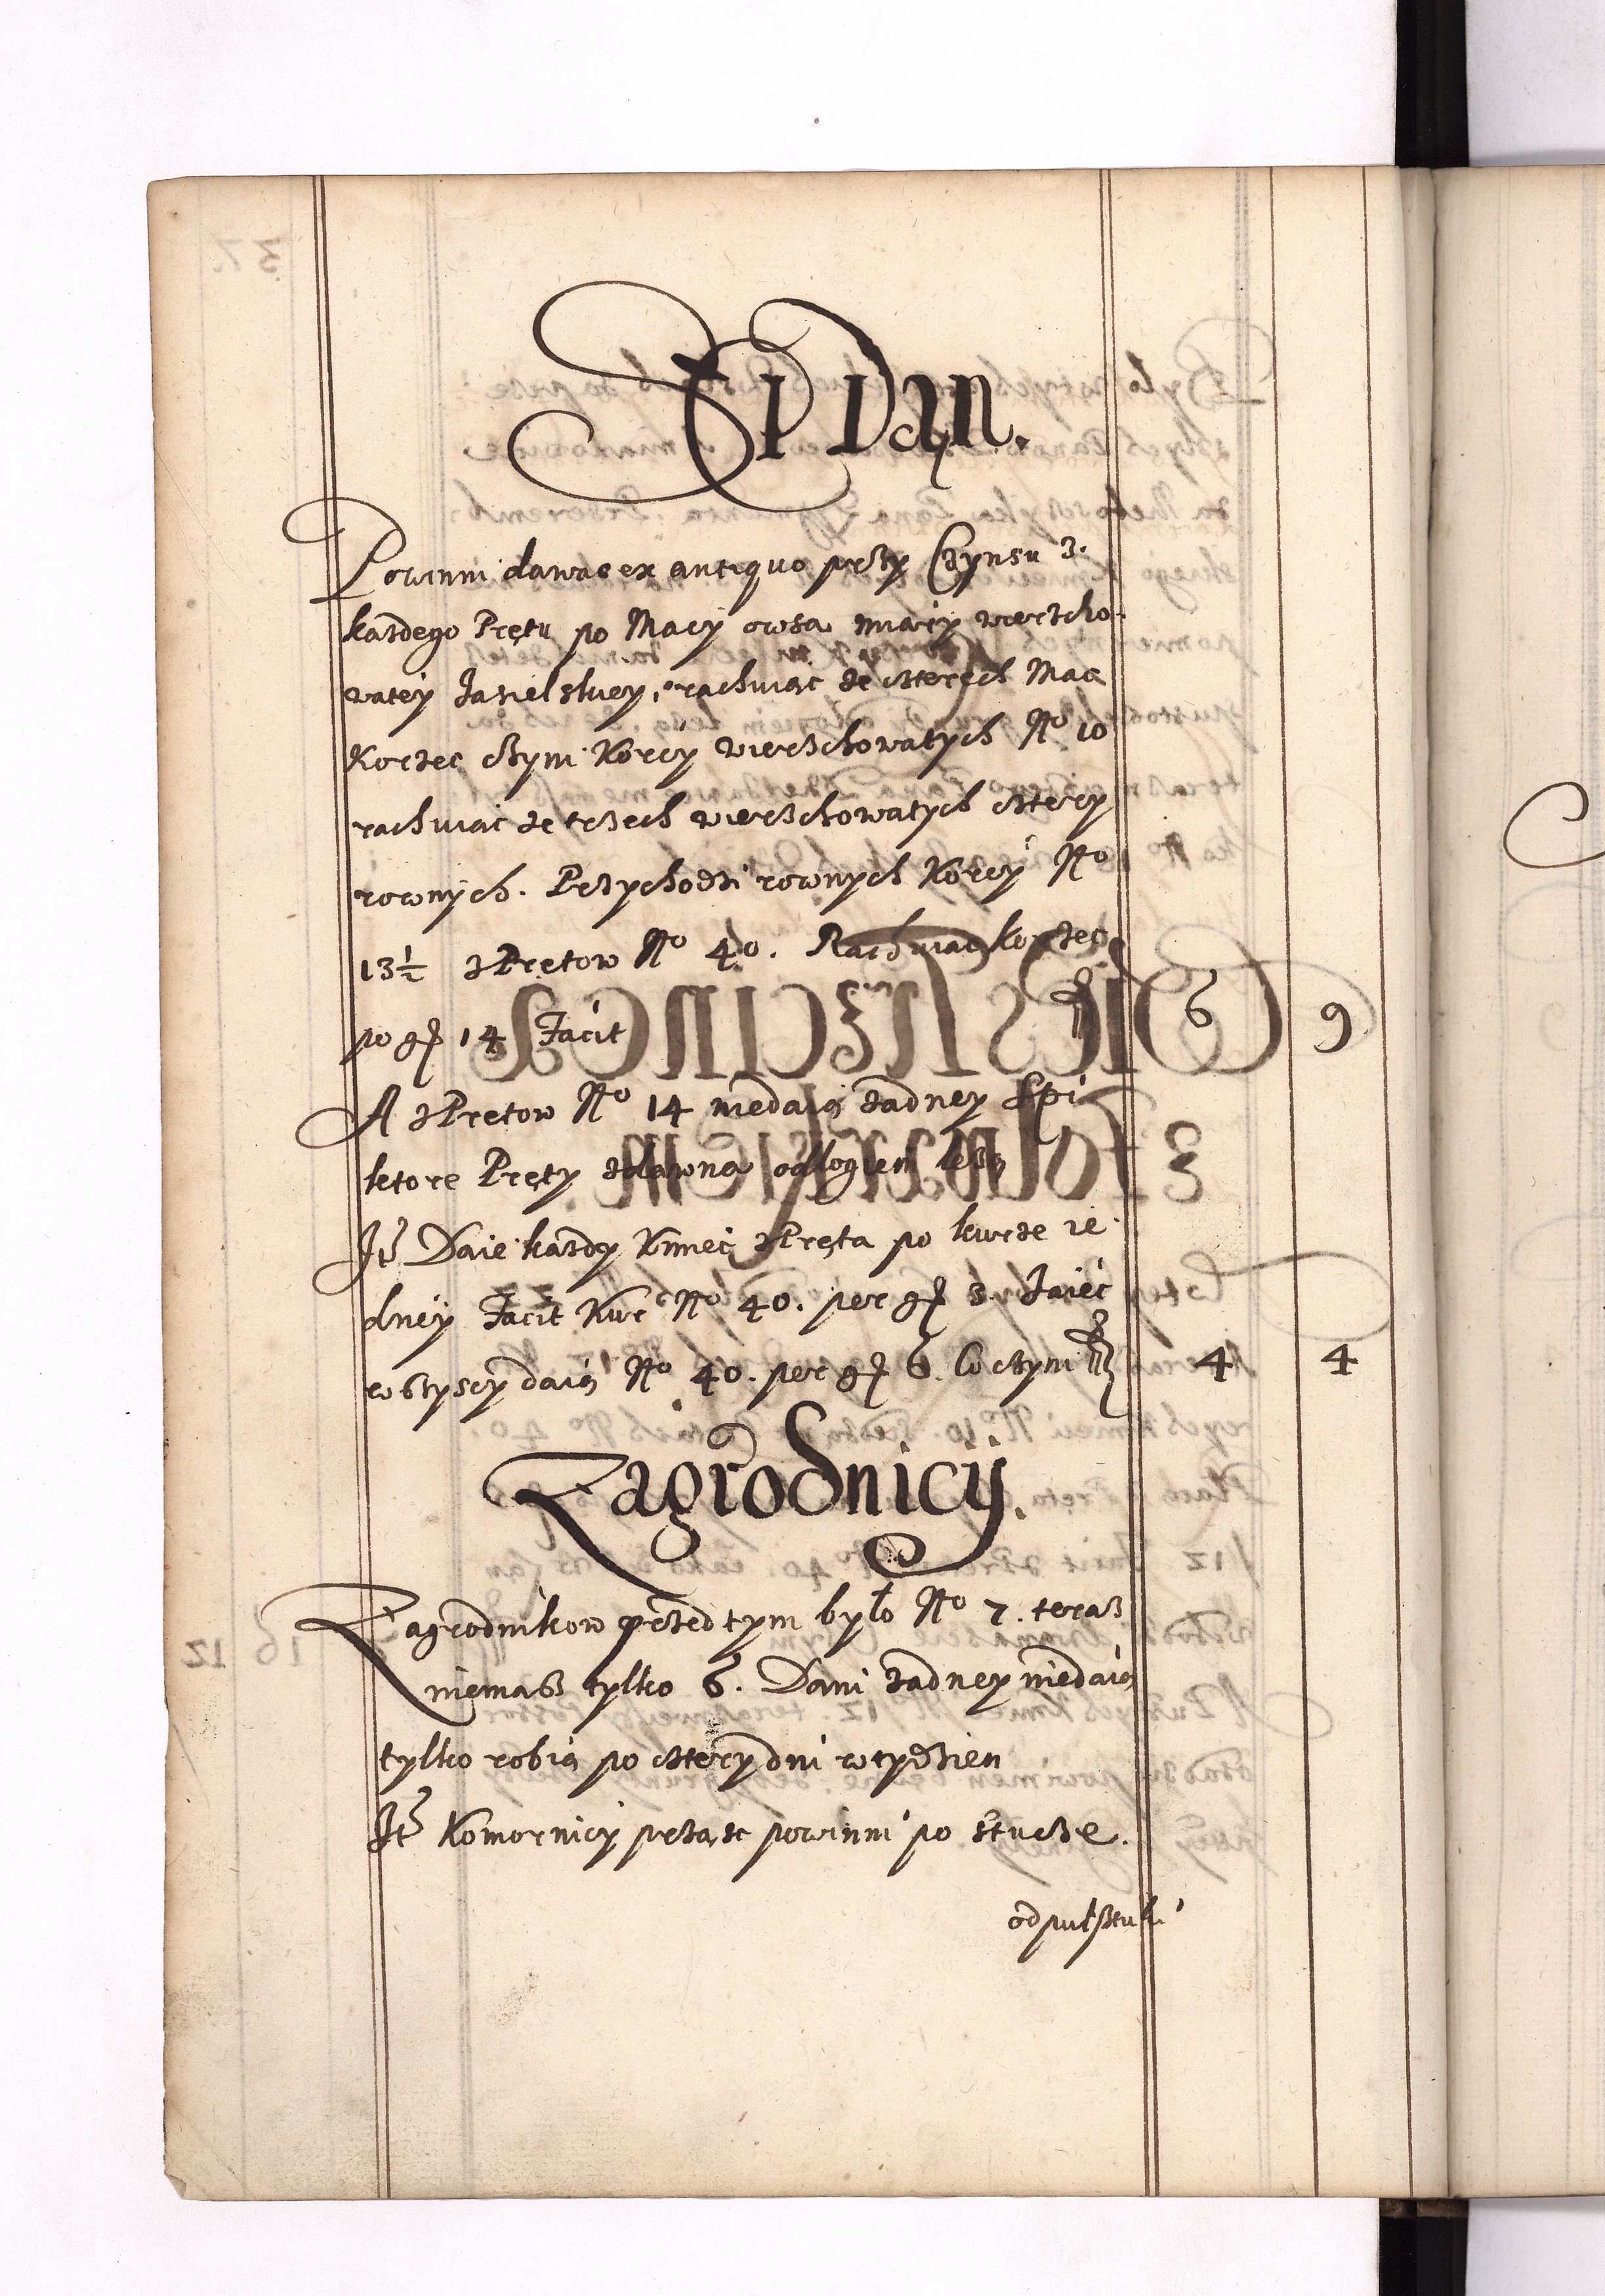 SpiDzy.
Powinni dawac ex antiquo przy Czynsu z.
kazdego Prętu po Macy owsa miary wierzcho-
watey Jasielskiey, rachuiąc ze czterech Mac
Korzec Czyni Korcy wierzchowatych No 10
rachuiąc ze trzech wierzchowatych cztery
rownych. Przychodzi rownych Korcy No
13½ z Prętow No 40. Rachuiąc korzec
po gr 14 Facit 6 9
A z Prętow No 14 niedaią żadney Spi
ktore Pręty zdawna odłogiem leżą
Itm Daie kazdy Kmieć z Pręta po kurze ie-
dney Facit Kur No 40. per gr 3. Jaiec
wszyscy daią No 40. per gr 6. Co czyni 4 4
Zagrodnicy.
Zagrodnikow przed tym było No 7. teraz
niemasz tylko 6. Dani żadney niedaią
tylko robią po cztery dni w tydzien
Itm Komornicy prząsc powinni po sztucze.
od pułsztuki